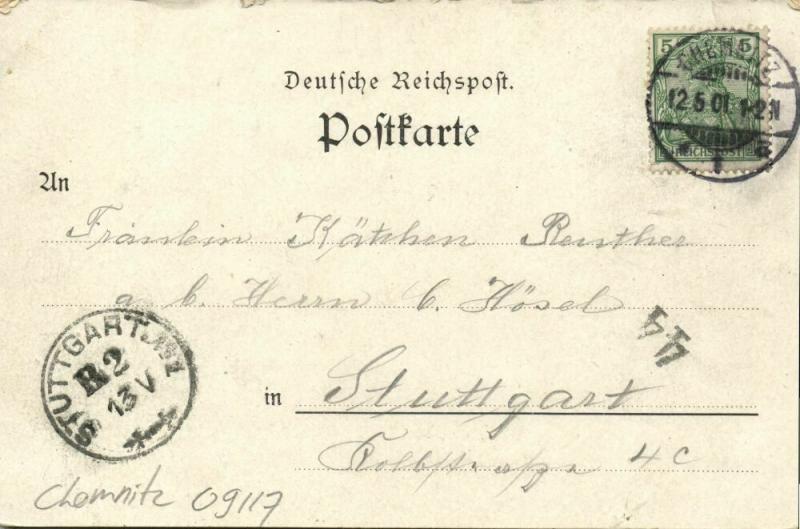 5 5
REICHSPOST
CHEMNITZ
12.5.01. 1-2N
1 e
Deutsche Reichspost.
Postkarte
An
Fräulein Käthchen Reuther
a. b. Herrn C. Hösel
44
in Stuttgart
4c
STUTTGART
B2
13 V
Chemnitz 09117